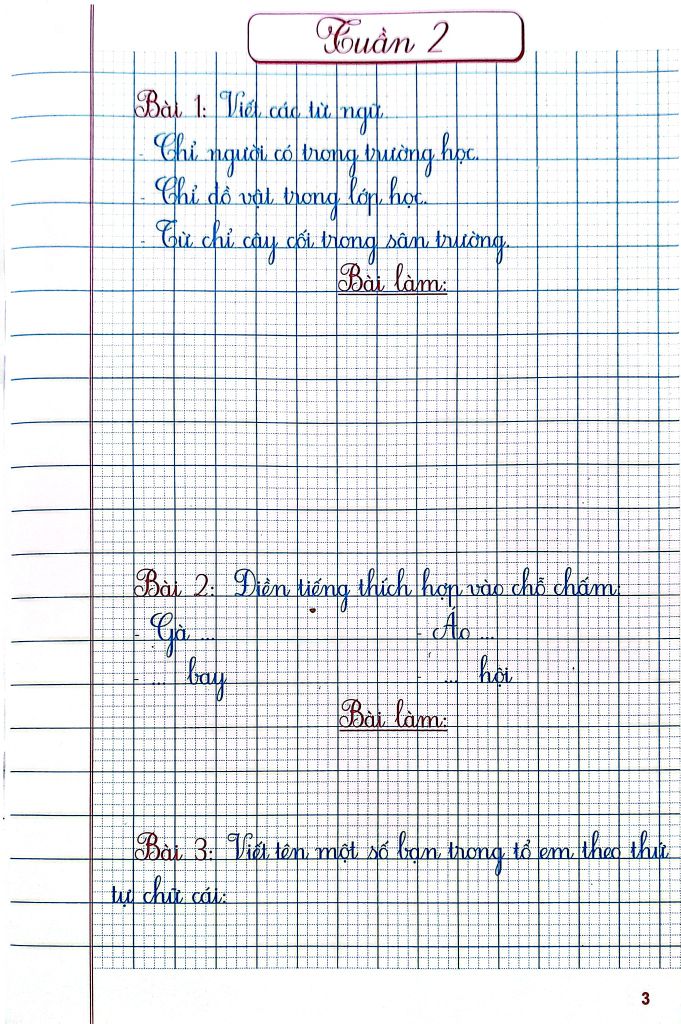 Tuần 2
Bài 1: Viết các từ ngữ
- Chỉ người có trong trường học.
- Chỉ đồ vật trong lớp học.
- Từ chỉ cây cối trong sân trường.
Bài làm:
Bài 2: Điền tiếng thích hợp vào chỗ chấm:
- Gà ... - Áo ...
- ... bay - ... hội
Bài làm:
Bài 3: Viết tên một số bạn trong tổ em theo thứ
tự chữ cái:
3